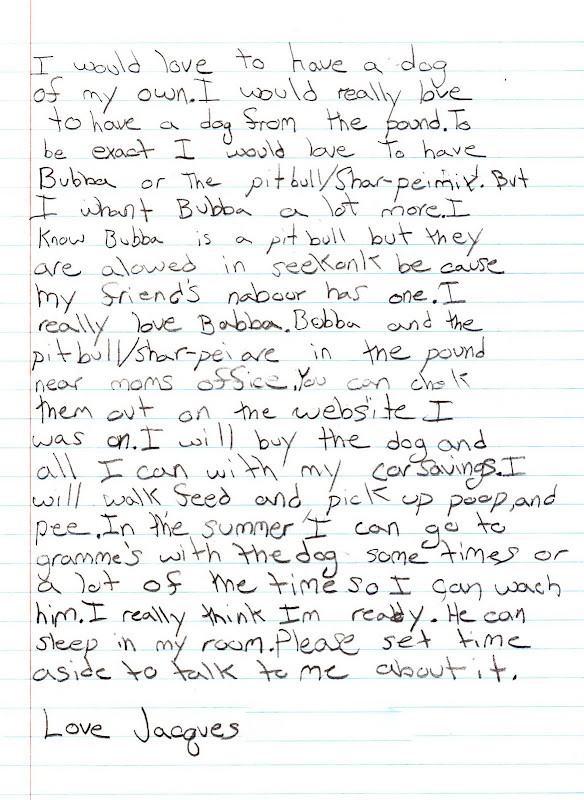 I would love to have a dog
of my own. I would really love
to have a dog from the pound. To
be exact I would love to have
Bubba or The pitbull/Shar-peimix. But
I whant Bubba a lot more. I
know Bubba is a pit bull but they
are alowed in seekonk be cause
my friend's nabour has one. I
really love Babba. Bobba and the
pitbull/shar-pei are in the pound
near moms office. You can chek
them out on the website I
was on. I will buy the dog and
all I can with my car savings. I
will walk feed and pick up poop, and
pee. In the summer I can go to
gramme's with the dog some times or
a lot of the time so I can wach
him. I really think Im ready. He can
sleep in my room. Please set time
aside to talk to me about it.
Love Jacques